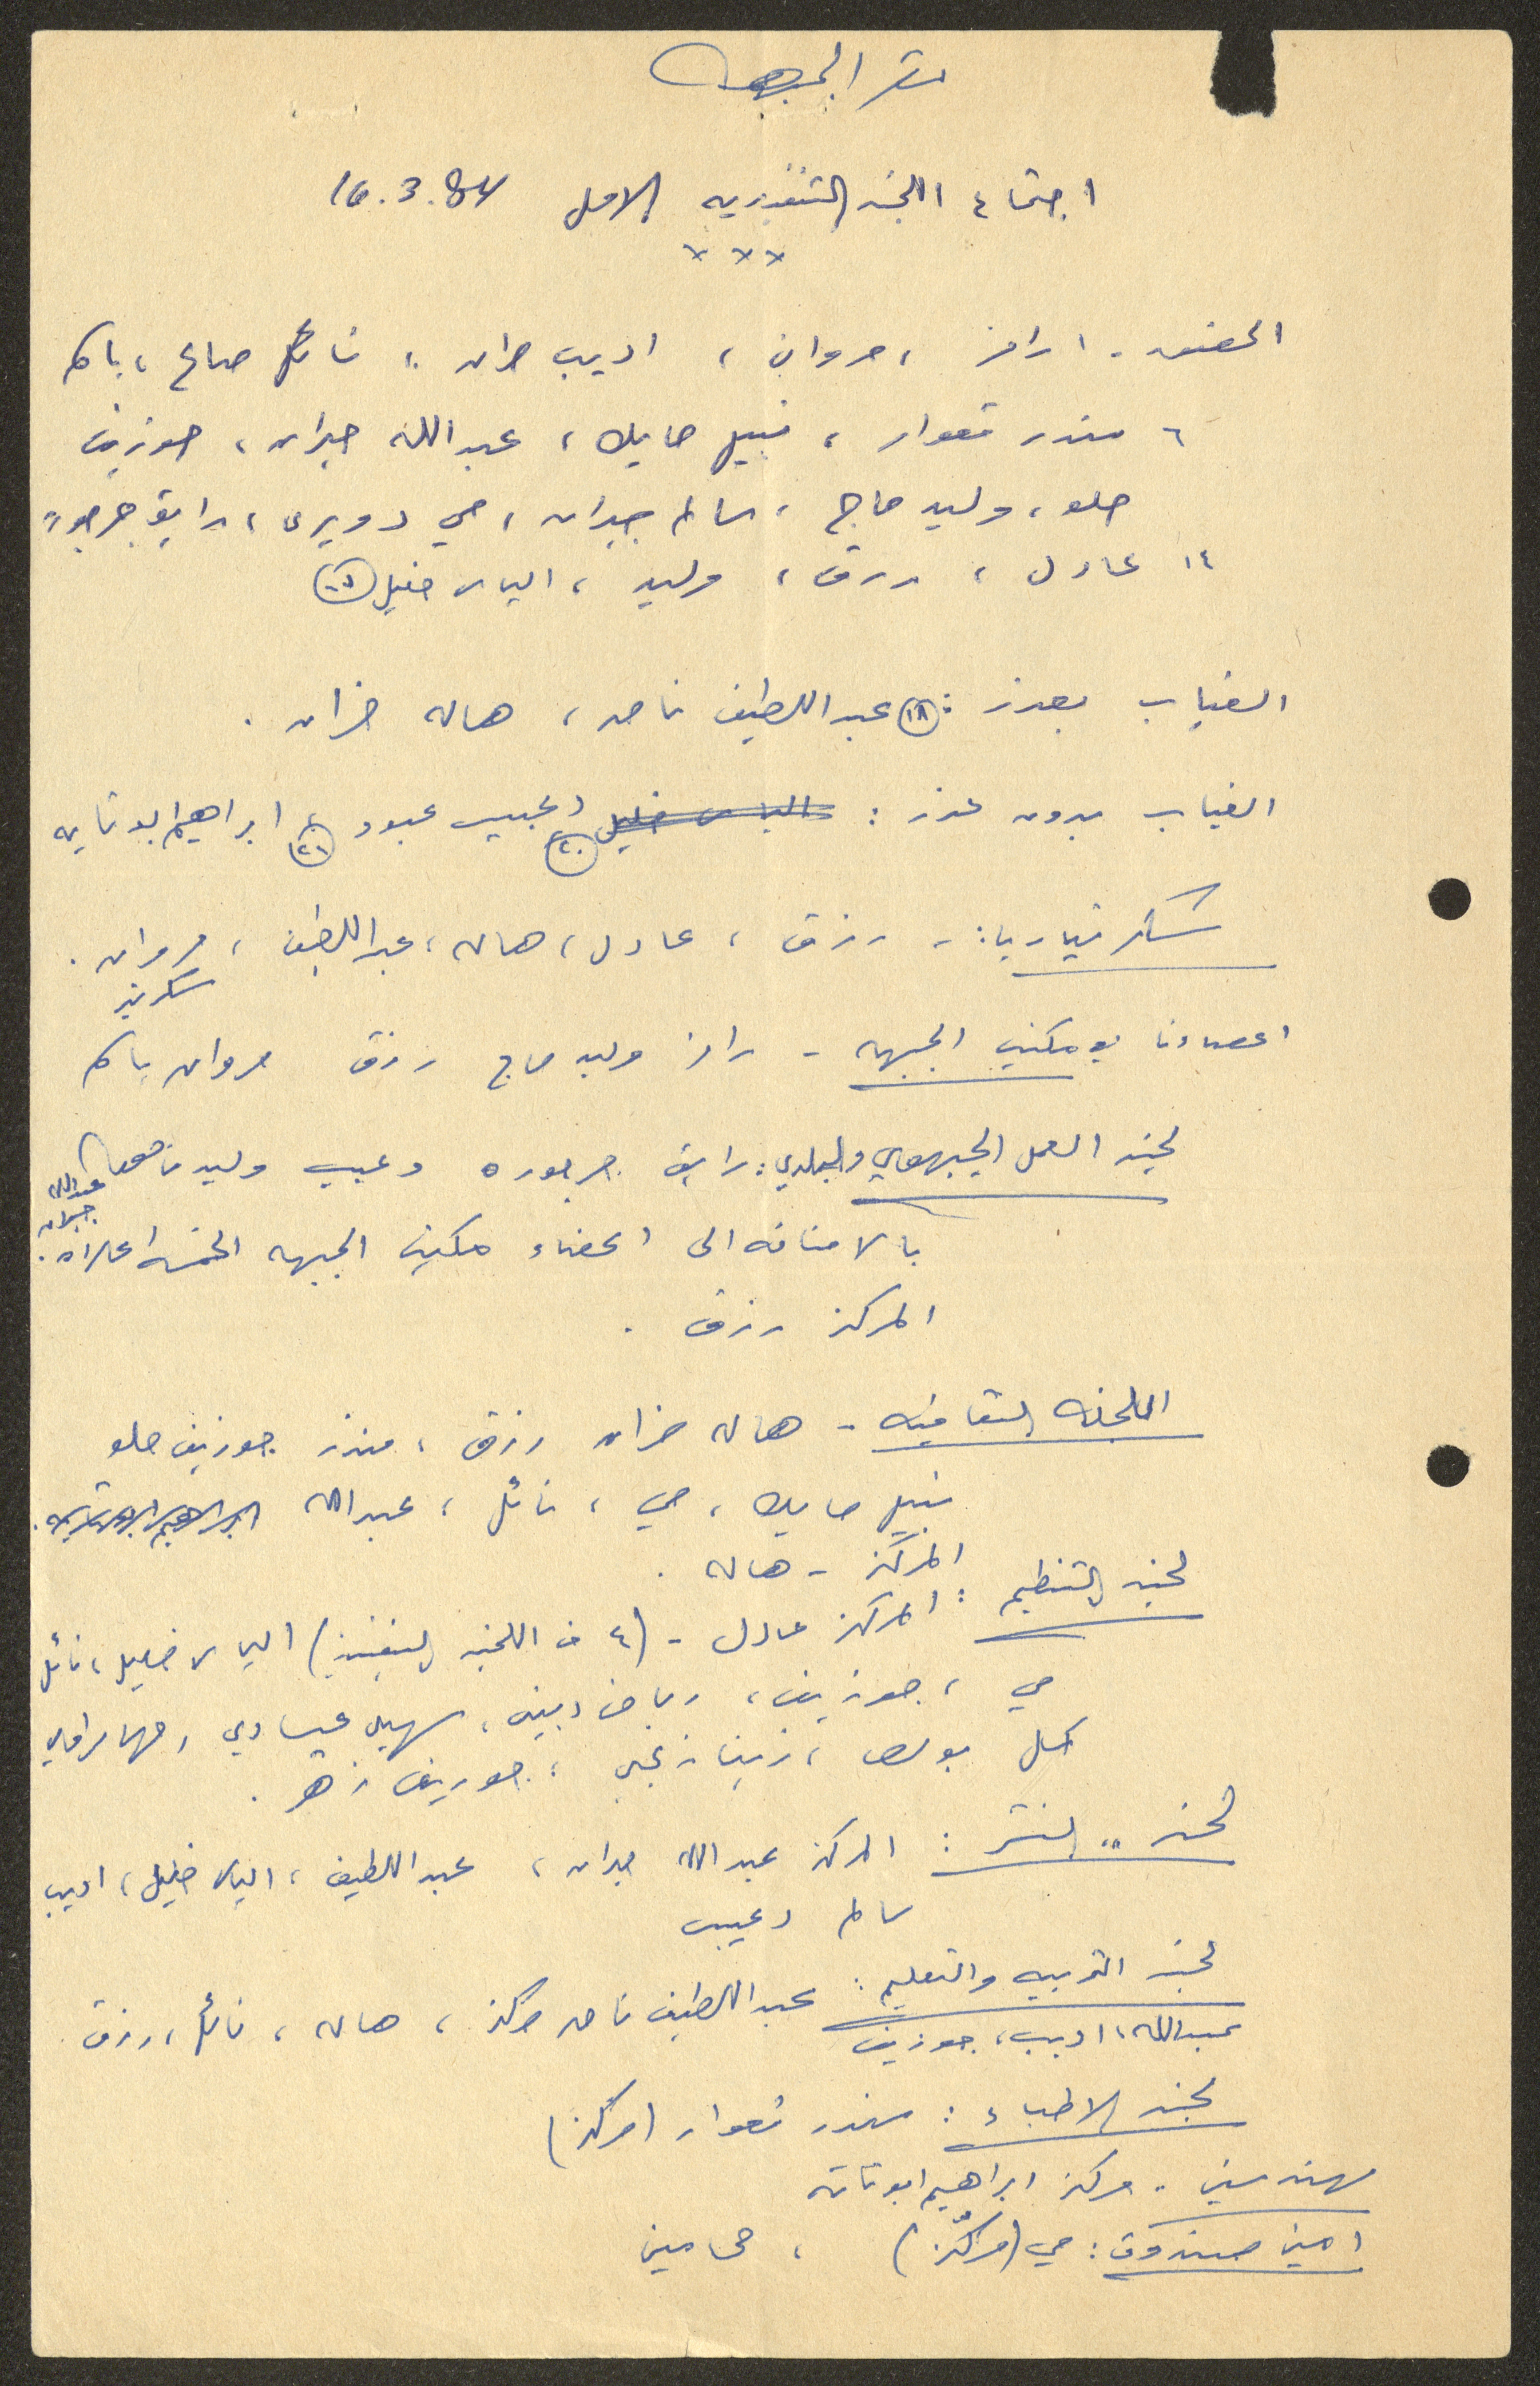 مقر الجبهه
اجتماع اللجنه التنفيذيه الاول 16.3.84
× × ×
الحضور - ١ رامز ، مروان ، اديب جبران ، نائل صالح ، باسم
٦ منذر قعوار ، نبيل حايك ، عبدالله جبران ، جوزيف
حلو ، وليد حاج ، سالم جبران ، مي دويري ، رايق جرجوره
١٤ عادل ، رزق ، وليد ، الياس خليل
الغياب بعذر : ١٨ عبد اللطيف ناصر ، هاله خزان .
الغياب بدون عذر : الياس خليل ٢٠ عبود ٢١ ابراهيم ابو تايه
سكرتياريا : - رزق ، عادل ، هاله ، عبداللطيف ، مروان .
سكرتير
اعضاءنا في مكتب الجبهه - رامز وليد حاج رزق مروان باسم
لجنه العمل الجبهوي والبلدي : رايق جرجوره دعيبس وليد
عبدالله
جبران
بالاضافه الى اعضاء مكتب الجبهه الخمسه اعلاه .
المركز رزق .
اللجنه الثقافيه - هاله خزان رزق ، منذر جوزيف حلو
نبيل حايك ، مي ، نائل ، عبدالله
المركز - هاله .
لجنه التنظيم : المركز عادل - ( ٤ من اللجنه التنفيذيه ) الياس خليل ، نائل
مي ، جوزيف ، رياض ، سهيل عيساوي ،
بولص ، ، جوزيف زهر .
لجنه النشر : المركز عبدالله جبران ، عبداللطيف ، الياس خليل ، اديب
سالم دعيبس
لجنه التربيه والتعليم : عبداللطيف ناصر مركز ، هاله ، نائل ، رزق
عبدالله ، اديب ، جوزيف
لجنه الاطباء : منذر قعوار ( مركز )
مهندسين - مركز ابراهيم ابو تايه
امين صندوق : مي ( مركز ) ، محامين